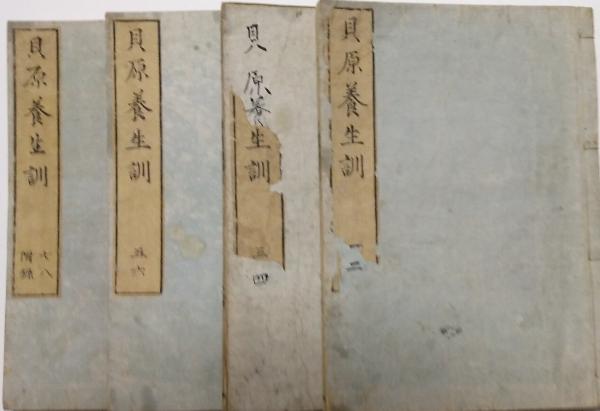 貝原養生訓 一二
貝原養生訓 三四
貝原養生訓 五六
貝原養生訓 七八
附録